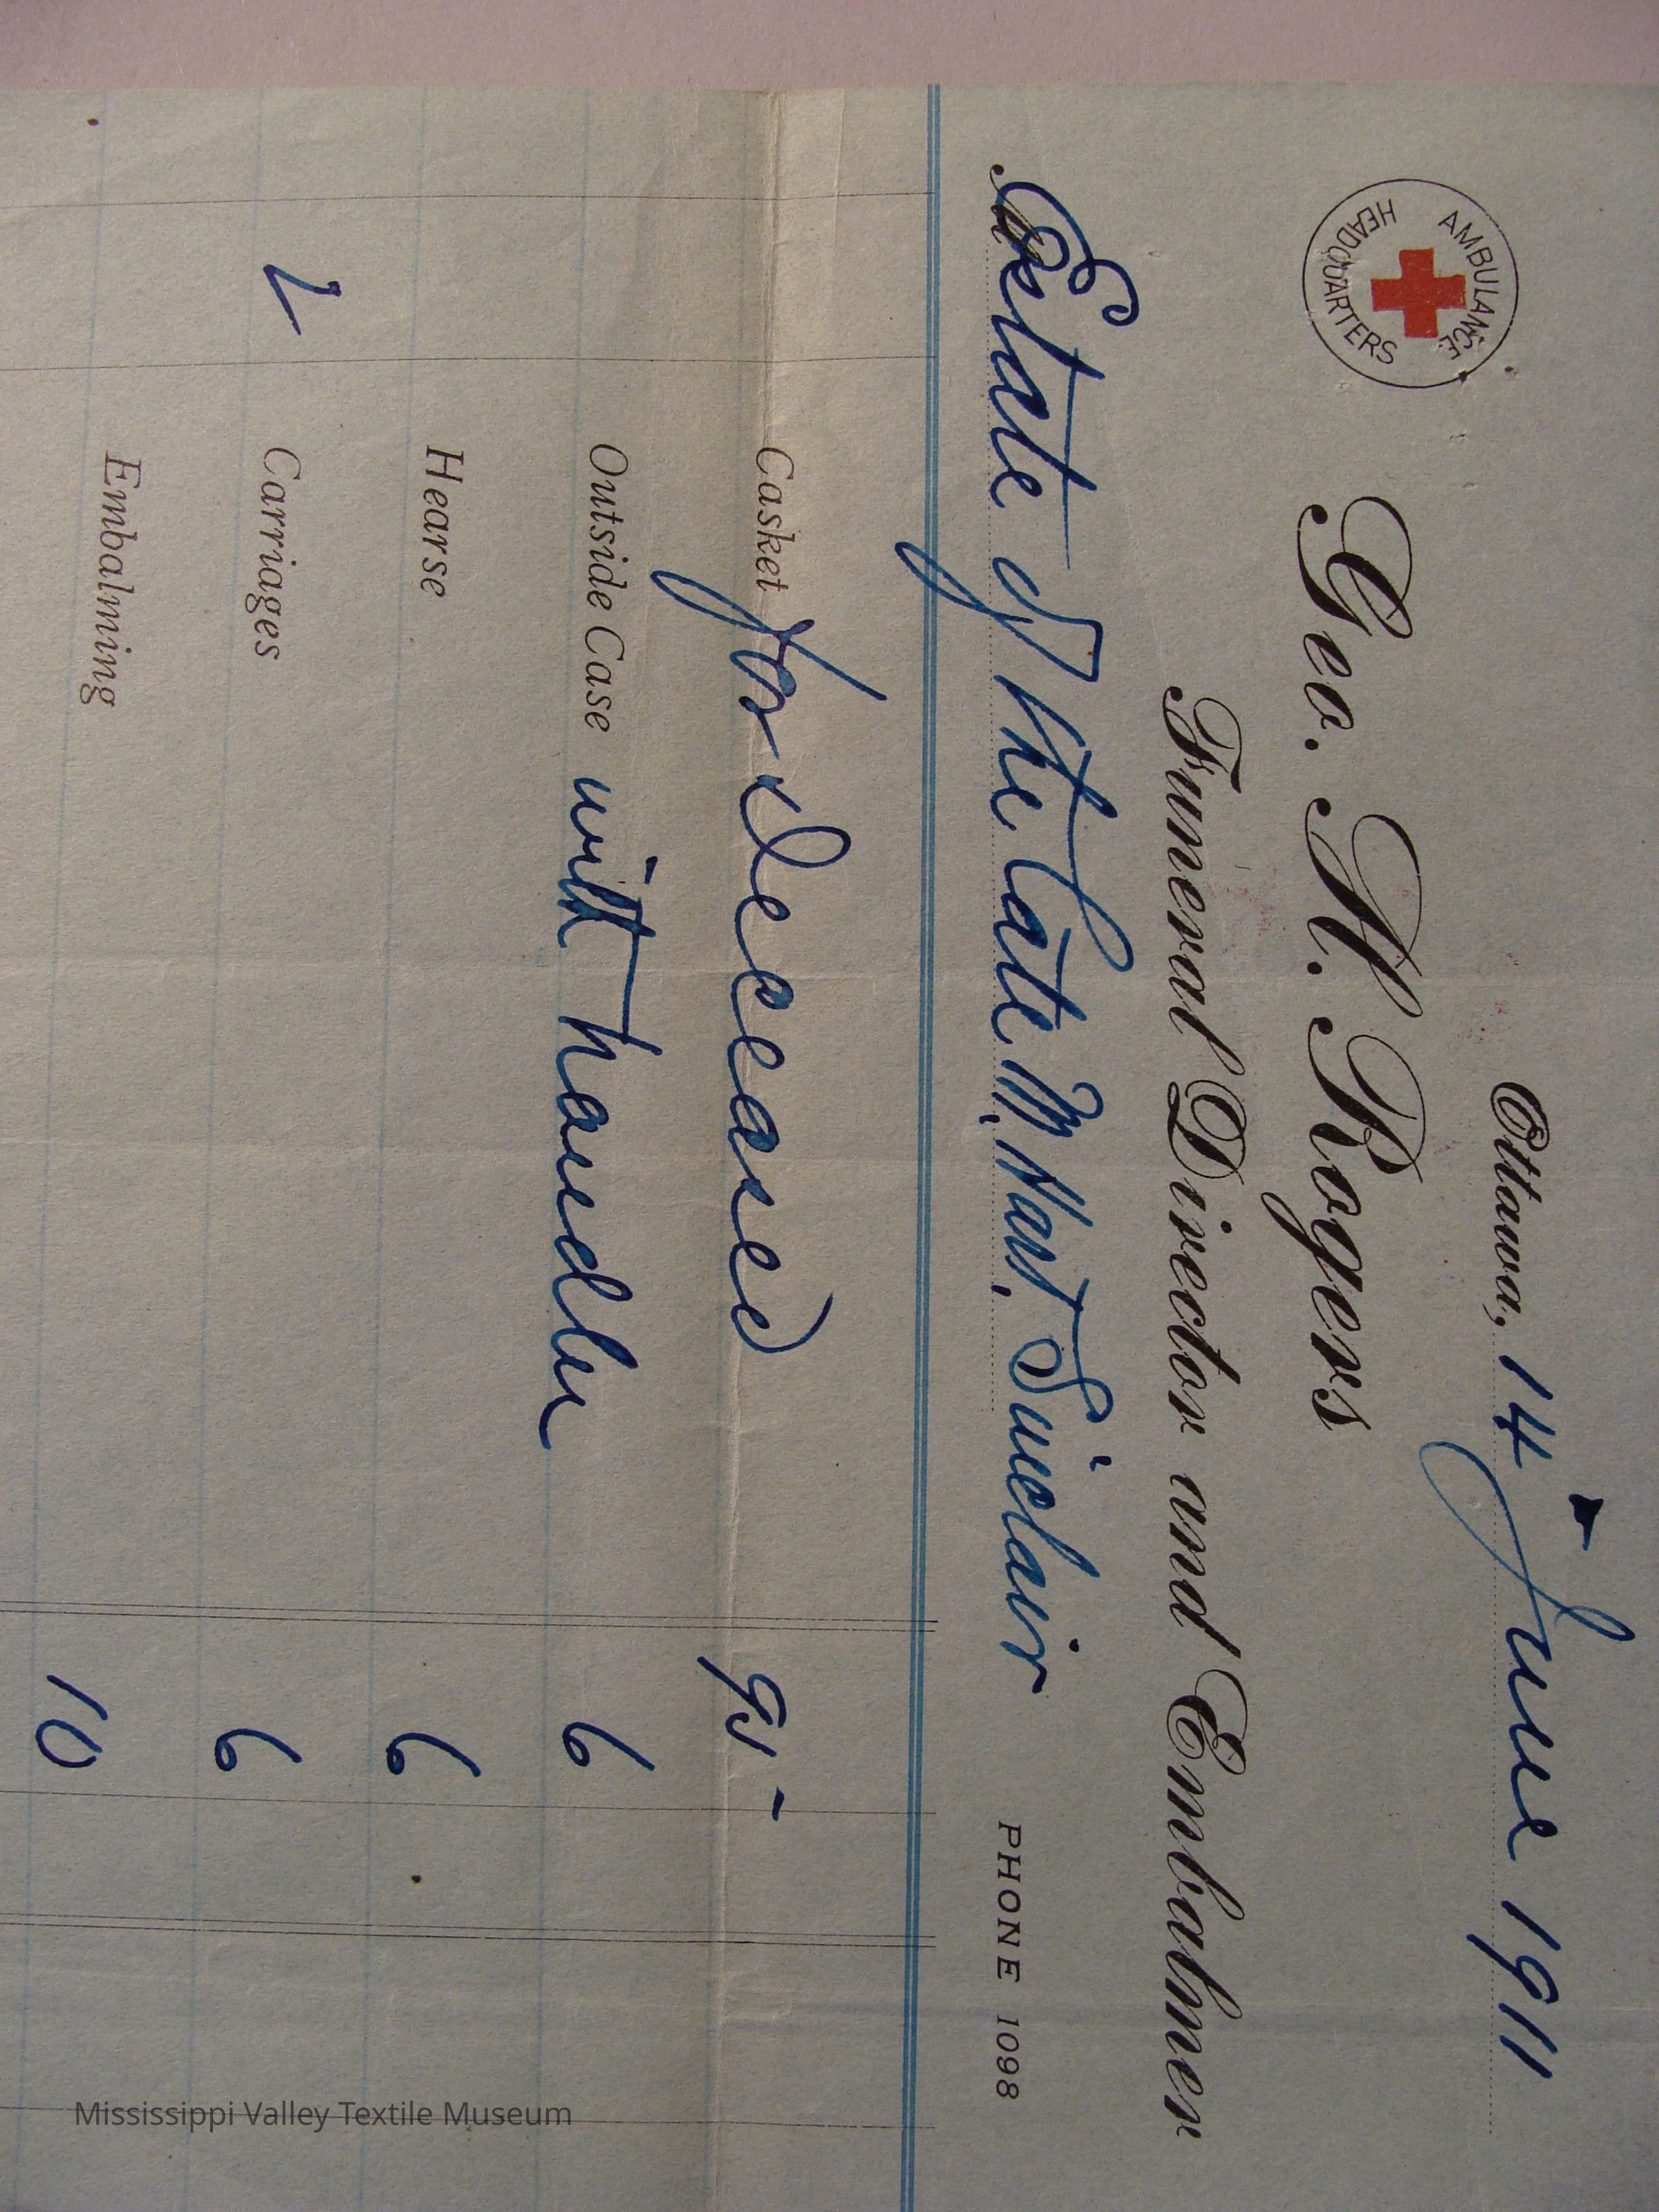 Ottawa, 14 June 1911
AMBULANCE
HEADQUARTERS
Geo. H. Rogers
Funeral Director and Embalmer
Estate of the late M. Sinclair
PHONE 1098
Casket for deceased 95 -
Outside Case with handles 6
Hearse 6
2 Carriages 6
Embalming 10
Mississippi Valley Textile Museum